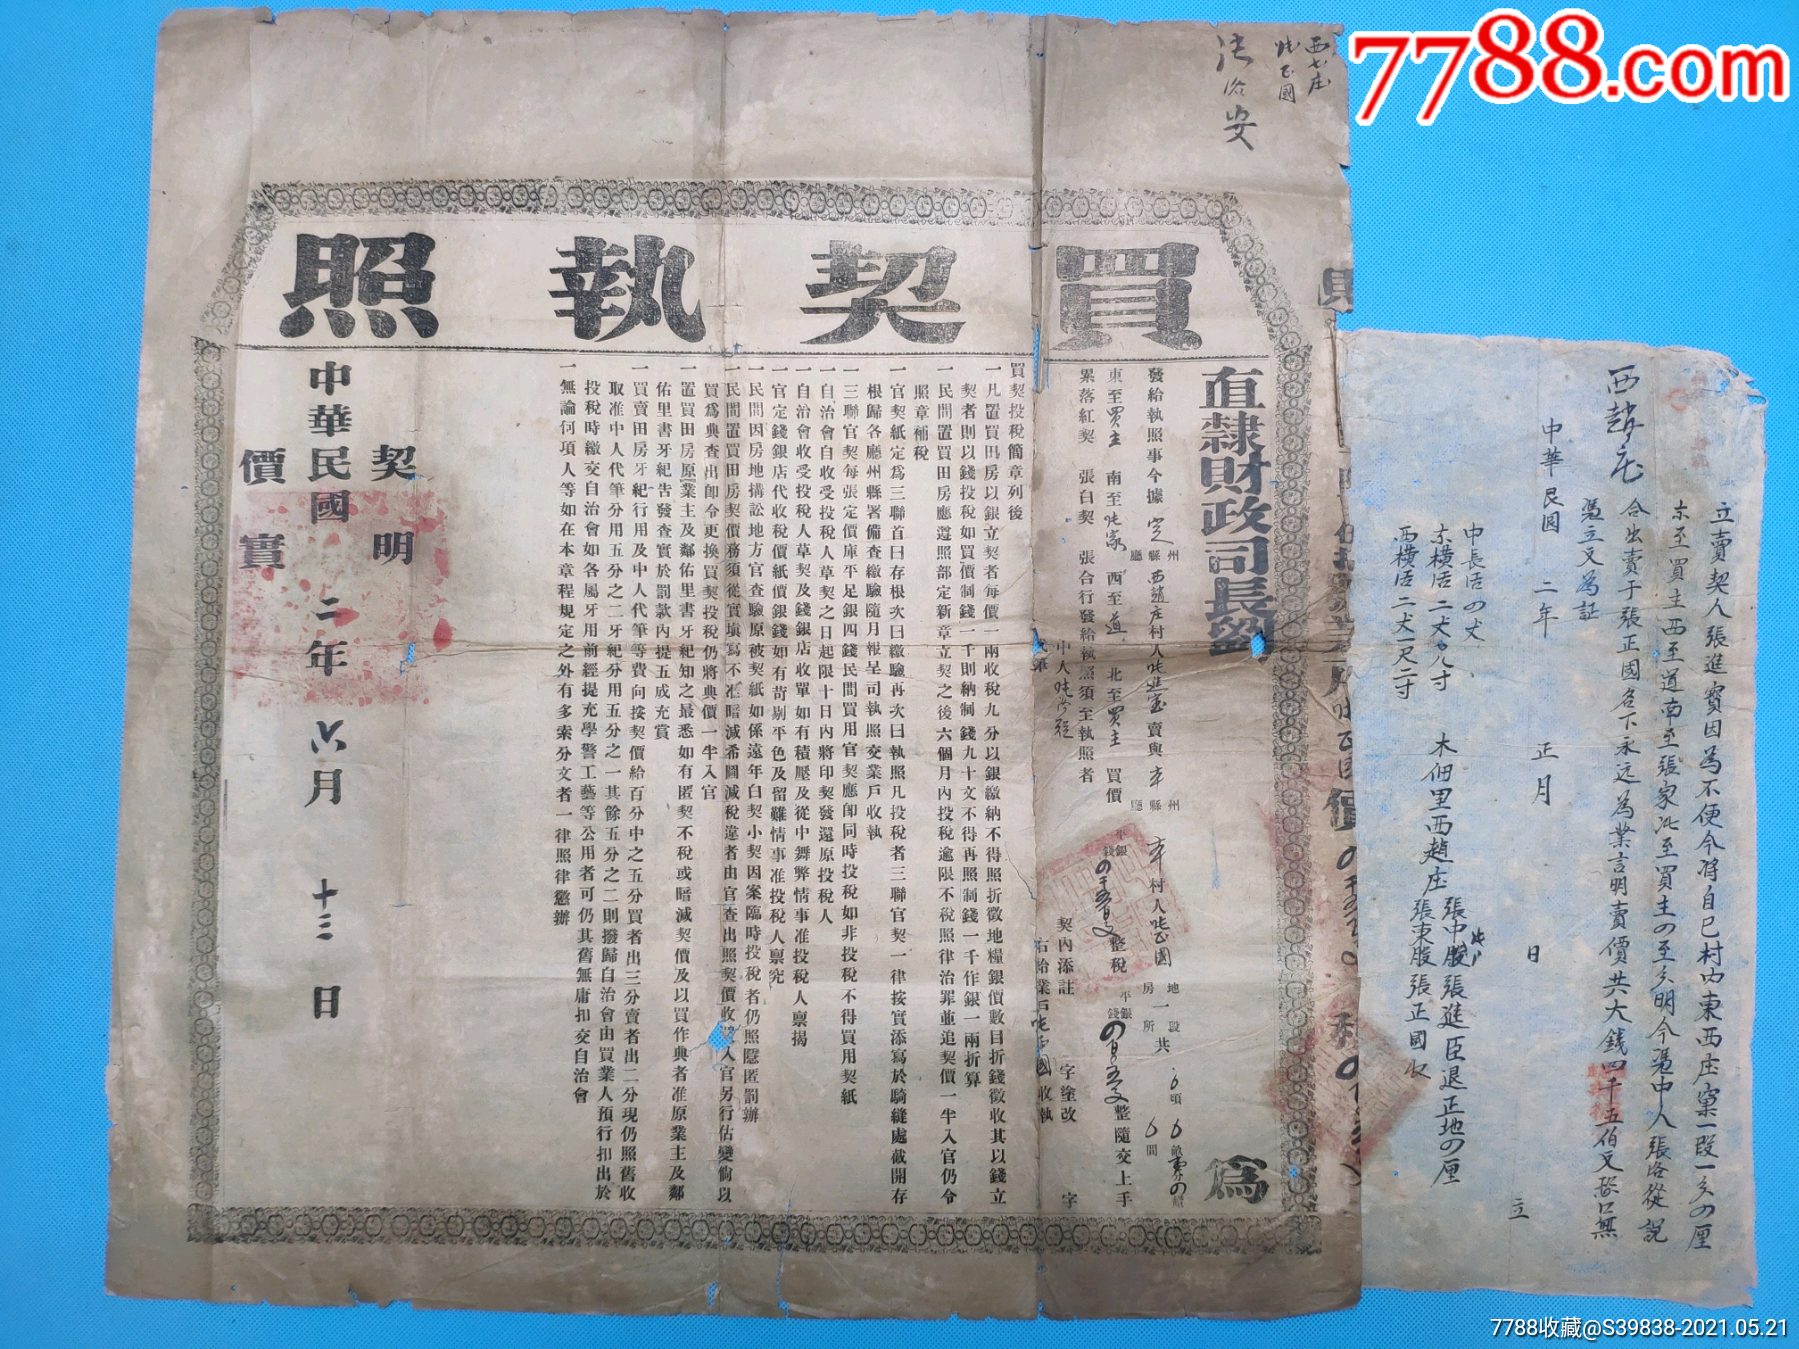 7788.com
西七庄
張正國
買契執照
直隸財政司長劉
為
發給執照事今據
西趙庄村人張進宝賣與
東至買主 南至張家 西至道 北至買主 買價
累落紅契 張白契 張合行發給執照須至執照者
整隨交上手
契內添註 字塗改 字
右給業戶張正國收執
買契投稅簡章列後
一凡置買田房以銀立契者每價一兩收稅九分以銀繳納不得照折徵地糧銀價數目折錢徵收其以錢立
契者則以錢投稅如買價制錢一千則納制錢九十文不得再照制錢一千作銀一兩折算
一民間置買田房應遵照部定新章立契之後六個月內投稅逾限不稅照律治罪並追契價一半入官仍令
照章補稅
一官契紙定為三聯首曰存根次曰繳驗再次曰執照凡投稅者三聯官契一律按實添寫於騎縫處截開存
根歸各廳州縣署備查繳驗隨月報呈司執照交業戶收執
一三聯官契每張定價庫平足銀四錢民間買用官契應即同時投稅如非投稅不得買用契紙
一自治會自收受投稅人草契之日起限十日內將印契發還原投稅人
一自治會收受投稅人草契及錢銀店收單如有積壓及從中舞弊情事准投稅人稟揭
一官定錢銀店代收稅價紙價銀錢如有苛剔平色及留難情事准投稅人稟究
一民間因房地搆訟地方官查驗原被契紙如係遠年白契小契因案臨時投稅者仍照隱匿罰辦
一民間置買田房契價務須從實填寫不准暗減希圖減稅違者由官查出照契價收買入官另行估變倘以
買為典查出卽令更換買契投稅仍將典價一半入官
一置買田房原業主及鄰佑里書牙紀知之最悉如有匿契不稅或暗減契價及以買作典者准原業主及鄰
佑里書牙紀告發查實於罰款內提五成充賞
一買賣田房牙紀行用及中人代筆等費向按契價給百分中之五分買者出三分賣者出二分現仍照舊收
取准中人代筆分用五分之二牙紀分用五分之一其餘五分之二則撥歸自治會由買業人預行扣出於
投稅時繳交自治會如各屬牙用前經提充學警工藝等公用者可仍其舊無庸扣交自治會
一無論何項人等如在本章程規定之外有多索分文者一律照律懲辦
契明
中華民國二年六月十三日
價實
立賣契人張進寶因為不便今將自己村內東西庄窠一段一分四厘
東至買主西至道南至張家北至買主四至分明今憑中人張洛從說
合出賣于張正國名下永远為業言明賣價共大錢四千五伯文恐口無
憑立文為証
西趙庄
中華民國 二年 正月 日 立
中長活四丈
東橫活二丈〇八寸
西橫活二丈一尺二寸
木佃里西趙庄張中股張進臣退正地四厘
張東股張正國收
7788收藏@S39838-2021.05.21